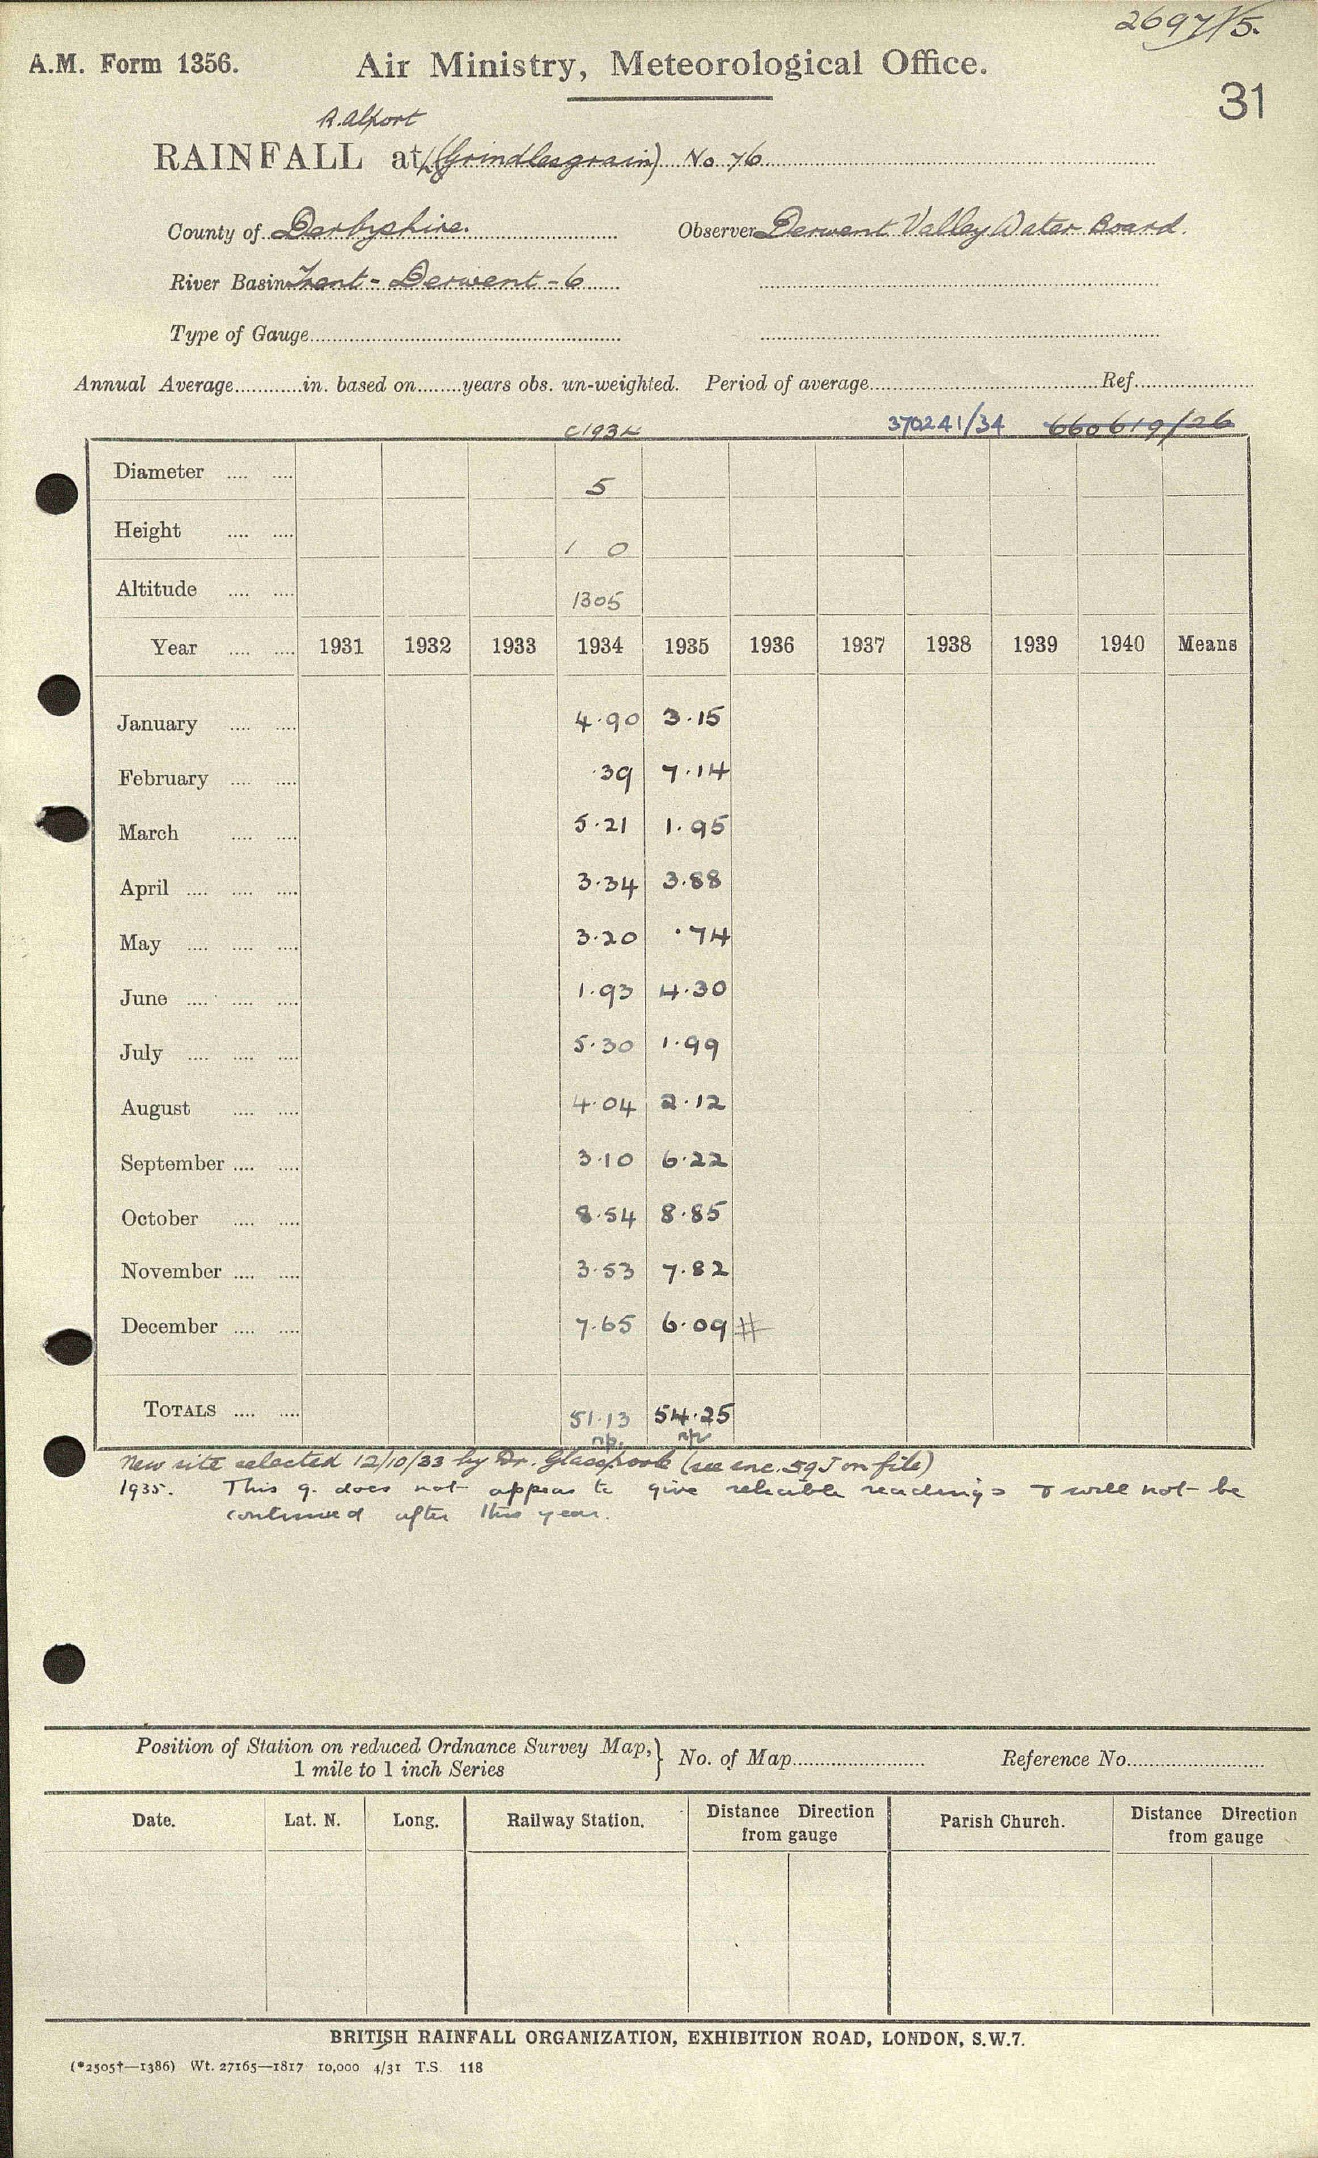 2697/15.
A.M. Form 1356. Air Ministry, Meteorological Office.
31
R. Alport
RAINFALL at (Grindlesgrain) No 76
County of Derbyshire. Observer Derwent Valley Water Board.
River Basin Trent - Derwent - 6
Type of Gauge
Annual Average in. based on years obs. un-weighted. Period of average Ref.
c1934 370241/34 660619/26
Diameter .... .... 5
Height .... .... 1 0
Altitude .... .... 1305
Year .... .... 1931 1932 1933 1934 1935 1936 1937 1938 1939 1940 Means
January .... .... 4.90 3.15
February .... .... .39 7.14
March .... .... 5.21 1.95
April .... .... .... 3.34 3.88
May .... .... .... 3.20 .74
June .... .... .... 1.93 4.30
July .... .... .... 5.30 1.99
August .... .... 4.04 2.12
September .... .... 3.10 6.22
October .... .... 8.54 8.85
November .... .... 3.53 7.82
December .... .... 7.65 6.09 #
TOTALS .... .... 51.13 54.25
np. np
New site selected 12/10/33 by Dr. Glasspoole (see enc. 59J on file)
1935. This g. does not appear to give reliable readings & will not be
continued after this year.
Position of Station on reduced Ordnance Survey Map, } No. of Map Reference No.
1 mile to 1 inch Series
Date. Lat. N. Long. Railway Station. Distance Direction Parish Church. Distance Direction
from gauge from gauge
BRITISH RAINFALL ORGANIZATION, EXHIBITION ROAD, LONDON, S.W.7.
(*2505†—1386) Wt. 27165—1817 10,000 4/31 T.S. 118